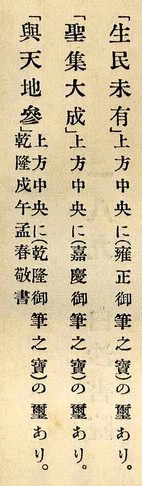 「生民未有」上方中央に(雍正御筆之寶)の璽あり。
「聖集大成」上方中央に(嘉慶御筆之寶)の璽あり。
「與天地參」上方中央に(乾隆御筆之寶)の璽あり。
乾隆戊午孟春敬書